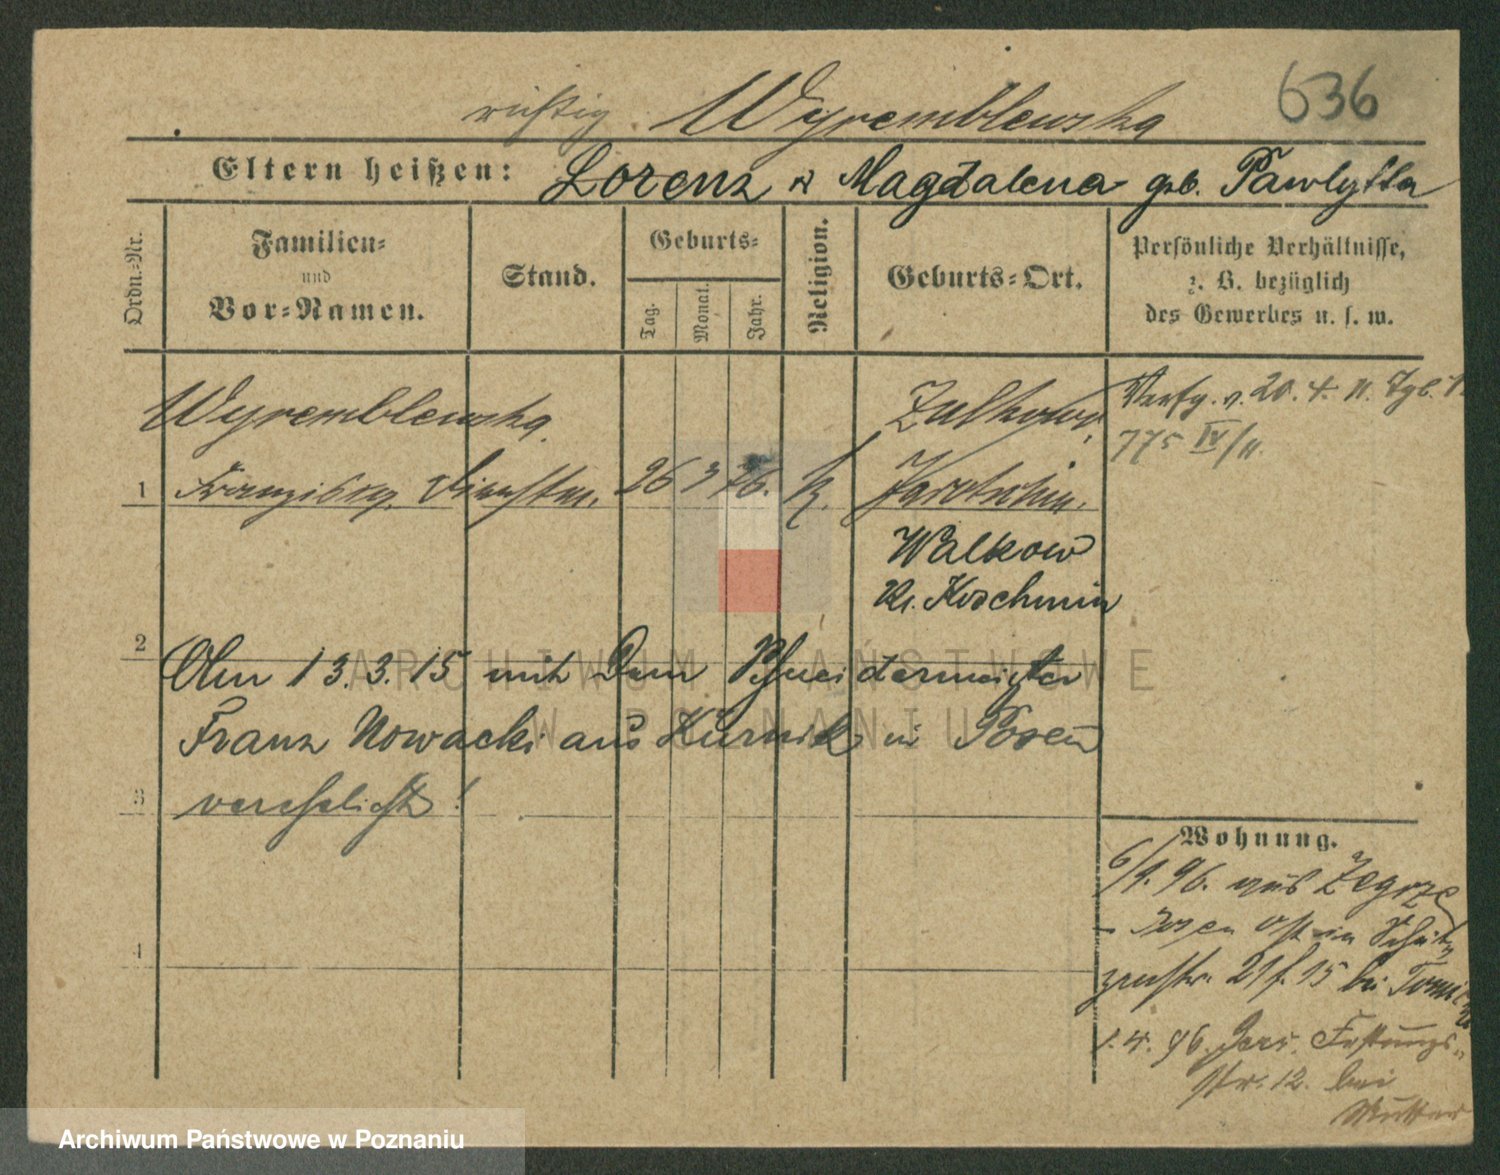 636
richtig Wyremblewska
Eltern heißen: Lorenz u Magdalena geb. Pawlytta
Ordn.-Nr.
Familien-
und
Vor-Namen.
Stand.
Geburts-
Tag.
Monat.
Jahr.
Religion.
Geburts-Ort.
Persönliche Verhältnisse,
z. B. bezüglich
des Gewerbes u. s. w.
Wyremblewska
1 Franziska 26 3 76. k.
Jarotschin.
Walkow
Kr. Koschmin
Verfg. v. 20. 4. 11. Tgb.
775 IV/11.
2
Am 13.3.15 mit dem Schneidermeister
Franz Nowacki aus Kurnik in Posen
3 verehelicht!
4
Wohnung.
6/1. 96. aus Zegrze
- Posen Ost in Schüt-
zenstr. 21 bei
1. 4. 96. Jers. Festungs-
str. 12. bei
Mutter
ARCHIWUM PAŃSTWOWE
W POZNANIU
Archiwum Państwowe w Poznaniu